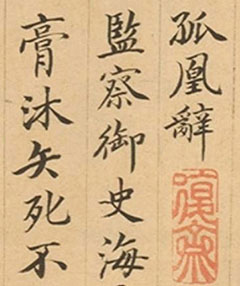 孤凰辭
監察御史海
膏沐矢死不